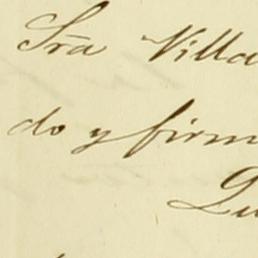 Sra Villa
do y firm
Lu